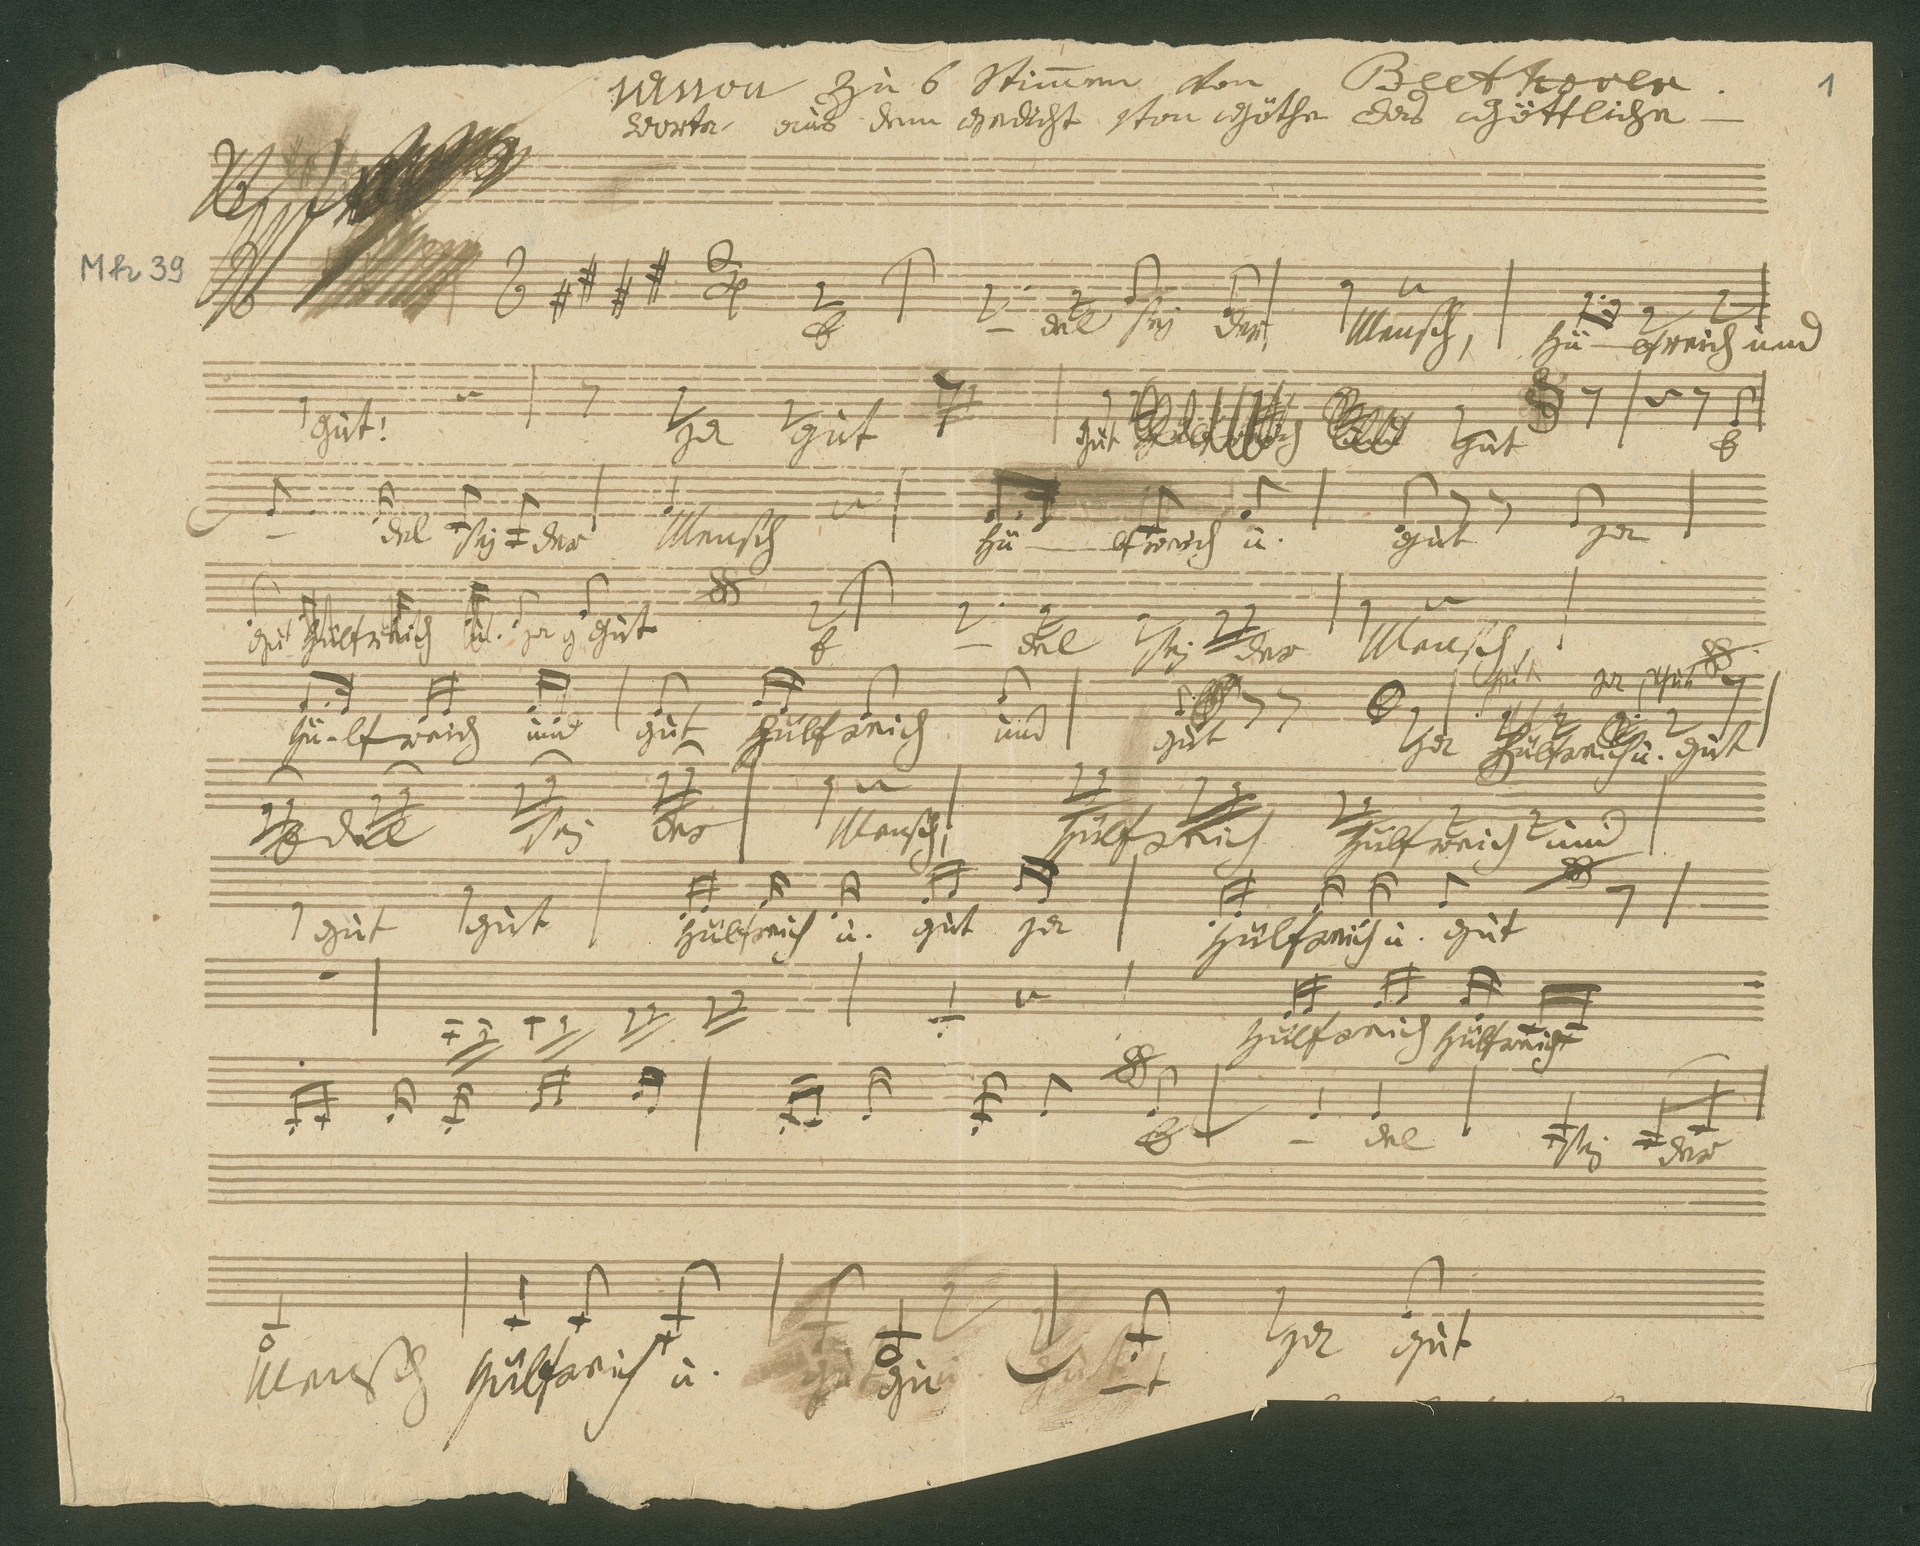 Canon zu 6 Stim̅en von Beethoven. 1
Worte aus dem Gedicht von Göthe das Göttliche —
Mh 39
E – del sey der Mensch, hü–lfreich und
gut! ja gut gut gut E
– del sey der Mensch hü–lfreich u. gut ja
gut hülfreich u. ja gut E – del sey der Mensch,
gut ja gut
hü-lfreich und gut hülfreich und gut ja hülfreich u. gut
Edel sey der Mensch, hülfreich hülfreich und
gut gut hülfreich u. gut ja hülfreich u. gut
hülfreich hülfreich
E – del sey der
Mensch hülfreich u. gu–t ja gut